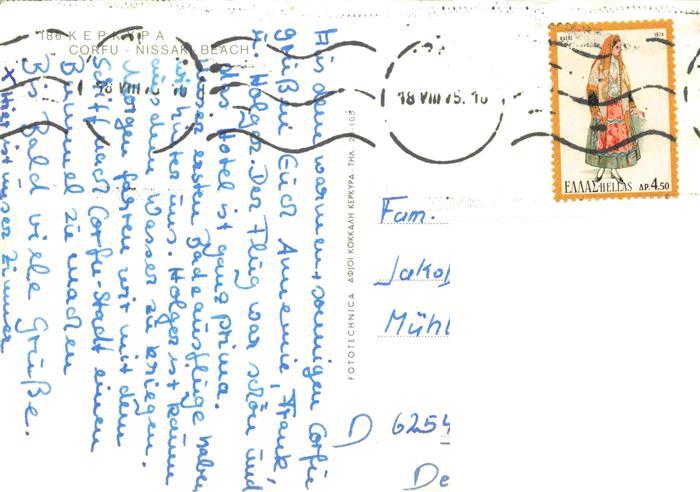 186 ΚΕΡΚΥΡΑ
CORFU - NISSAKI BEACH
Aus dem warmen + sonnigen Corfu
grüßen Euch Annemie, Frank,
u. Holger. Der Flug war schön und
das Hotel ist ganz prima.
unser ersten Badeausflüge haben
wir hinter uns. Holger ist kaum
aus dem Wasser zu kriegen.
Morgen fahren wir mit dem
Schiff nach Corfu-Stadt einen
Bummel zu machen
Bis bald viele Grüße.
x Hier ist unser Zimmer
FOTOTECHNICA ΑΦΙΟΙ ΚΟΚΚΑΛΗ ΚΕΡΚΥΡΑ · ΤΗΛ.
18 VIII 75. 10
18 VIII 75
1974
ΕΛΛΑΣ-HELLAS ΔΡ. 4.50
Fam.
Jakob
Mühl
D 6254
De